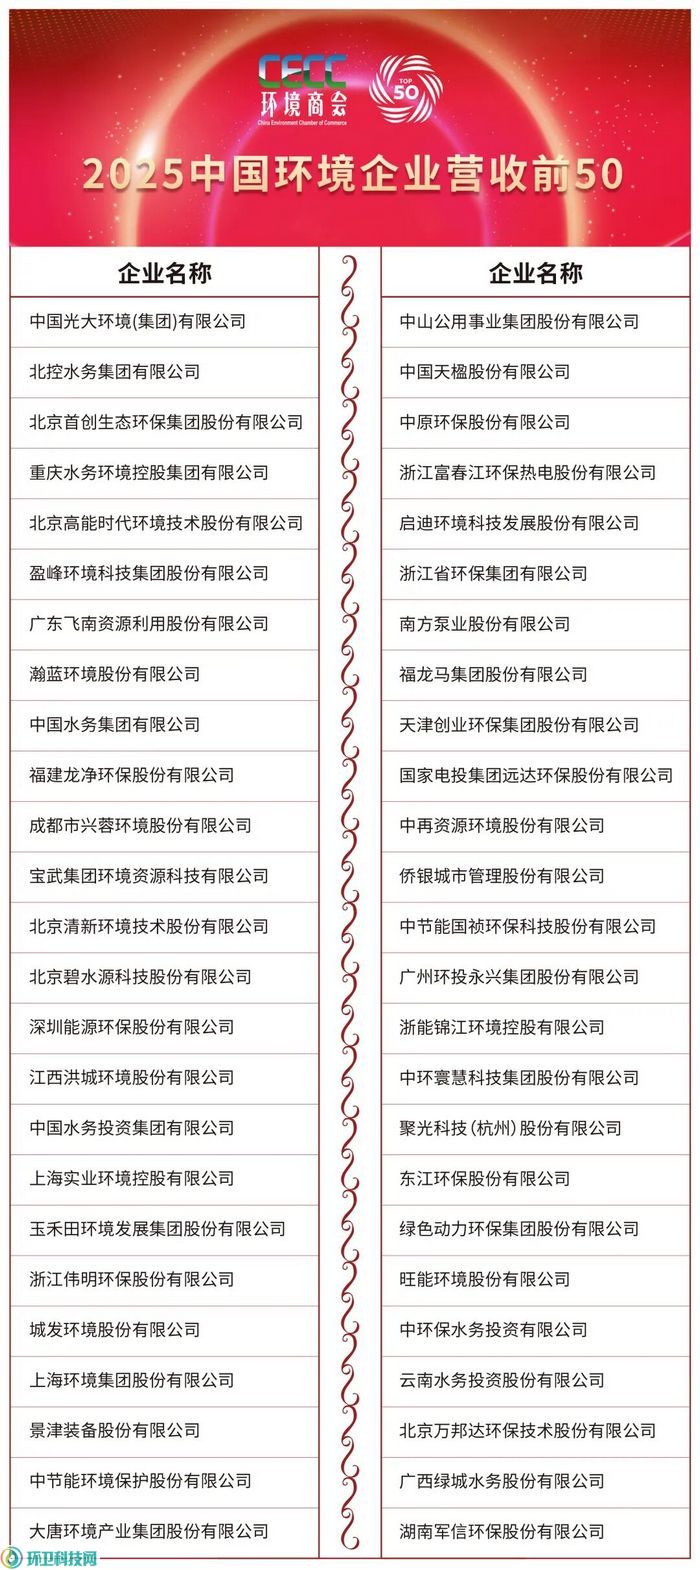 CECC
环境商会
China Environment Chamber of Commerce
TOP
50
2025中国环境企业营收前50
企业名称
中国光大环境(集团)有限公司
北控水务集团有限公司
北京首创生态环保集团股份有限公司
重庆水务环境控股集团有限公司
北京高能时代环境技术股份有限公司
盈峰环境科技集团股份有限公司
广东飞南资源利用股份有限公司
瀚蓝环境股份有限公司
中国水务集团有限公司
福建龙净环保股份有限公司
成都市兴蓉环境股份有限公司
宝武集团环境资源科技有限公司
北京清新环境技术股份有限公司
北京碧水源科技股份有限公司
深圳能源环保股份有限公司
江西洪城环境股份有限公司
中国水务投资集团有限公司
上海实业环境控股有限公司
玉禾田环境发展集团股份有限公司
浙江伟明环保股份有限公司
城发环境股份有限公司
上海环境集团股份有限公司
景津装备股份有限公司
中节能环境保护股份有限公司
大唐环境产业集团股份有限公司
企业名称
中山公用事业集团股份有限公司
中国天楹股份有限公司
中原环保股份有限公司
浙江富春江环保热电股份有限公司
启迪环境科技发展股份有限公司
浙江省环保集团有限公司
南方泵业股份有限公司
福龙马集团股份有限公司
天津创业环保集团股份有限公司
国家电投集团远达环保股份有限公司
中再资源环境股份有限公司
侨银城市管理股份有限公司
中节能国祯环保科技股份有限公司
广州环投永兴集团股份有限公司
浙能锦江环境控股有限公司
中环寰慧科技集团股份有限公司
聚光科技(杭州)股份有限公司
东江环保股份有限公司
绿色动力环保集团股份有限公司
旺能环境股份有限公司
中环保水务投资有限公司
云南水务投资股份有限公司
北京万邦达环保技术股份有限公司
广西绿城水务股份有限公司
湖南军信环保股份有限公司
环卫科技网